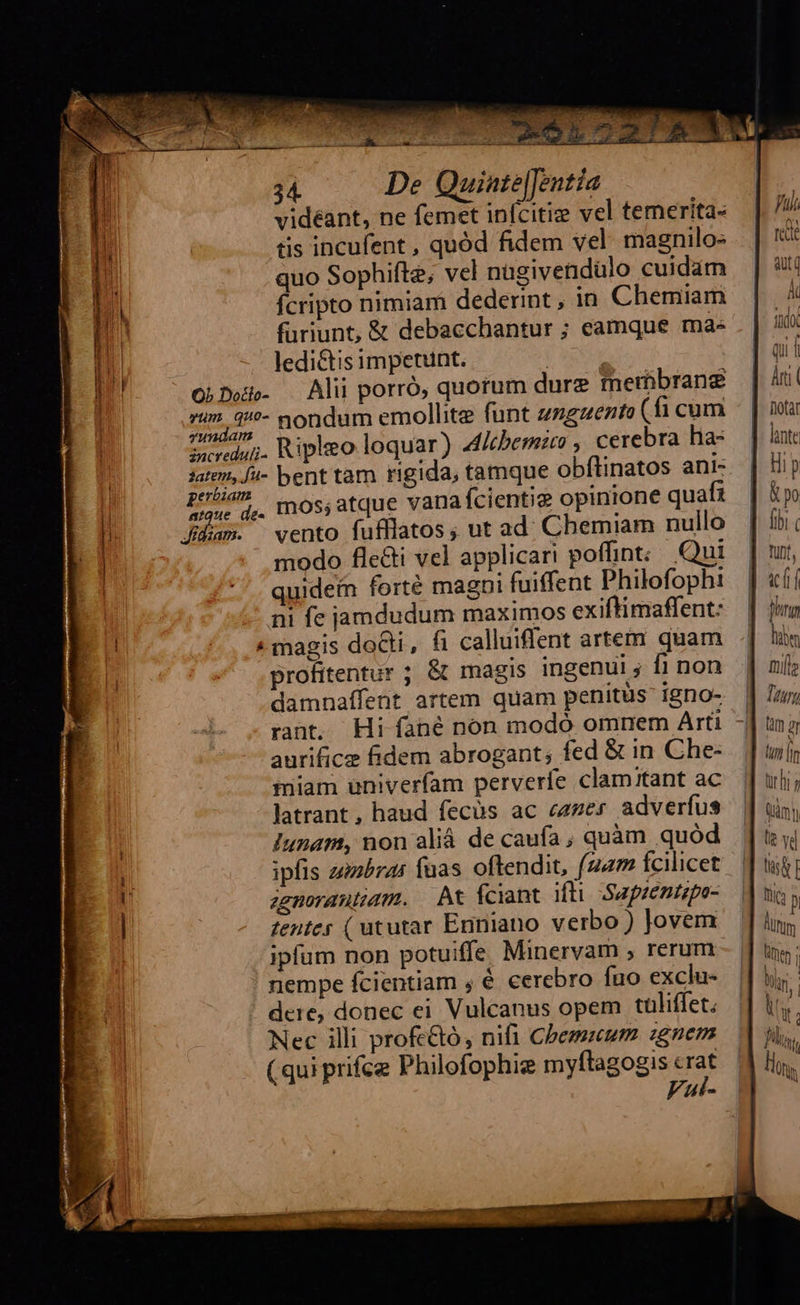 34 De Quinteſſentia
videant, ne ſemet inſcitiæ vel temerita-
tis incuſent, quòd fidem vel magnilo-
quo Sophiſtæ, vel nugivendulo cuidam
ſcripto nimiam dederint, in Chemiam
furiunt, & debacchantur; eamque ma-
ledictis impetunt.
Ob Docto-
rum quo-
rundam
increduli-
tatem, ſu-
perbiam
atque de-
ſidiam.
Alii porrò, quorum duræ membranæ
nondum emollitæ ſunt unguento (ſi cum
Riplæo loquar) Alchemico, cerebra ha-
bent tam rigida, tamque obſtinatos ani-
mos; atque vana ſcientiæ opinione quaſi
vento ſufflatos; ut ad Chemiam nullo
modo flecti vel applicari poſſint. Qui
quidem fortè magni fuiſſent Philoſophi
ni ſe jamdudum maximos exiſtimaſſent:
* magis docti, ſi calluiſſent artem quam
profitentur; & magis ingenui, ſi non
damnaſſent artem quam penitùs igno-
rant. Hi ſanè non modò omnem Arti
aurificæ fidem abrogant; ſed & in Che-
miam univerſam perverſe clamitant ac
latrant, haud ſecùs ac canes adverſus
lunam, non aliâ de cauſa, quàm quòd
ipſis umbras ſuas oſtendit, ſuam ſcilicet
ignorantiam. At ſciant iſti Sapientipo-
tentes (ut utar Enniano verbo) Jovem
ipſum non potuiſſe Minervam, rerum
nempe ſcientiam, è cerebro ſuo exclu-
dere, donec ei Vulcanus opem tuliſſet.
Nec illi profectò, niſi Chemicum ignem
(qui priſcæ Philoſophiæ myſtagogis erat
Vul-